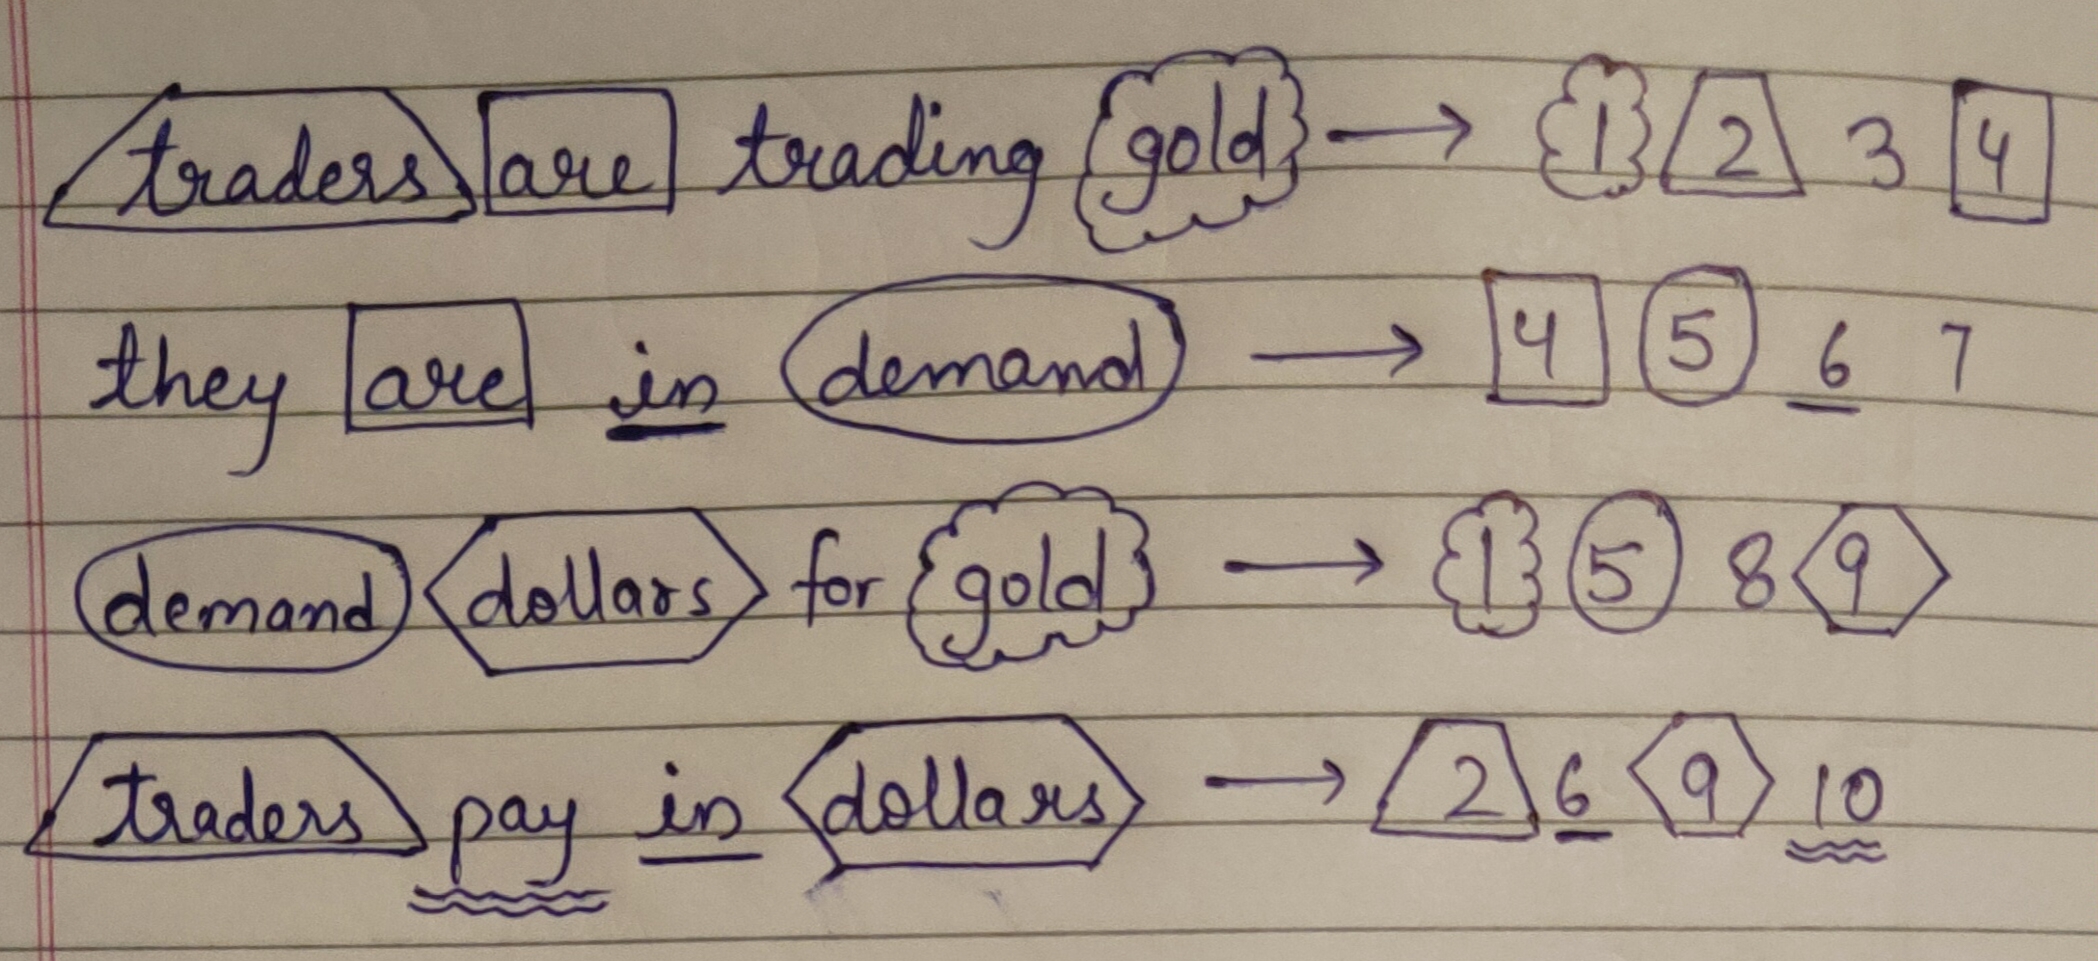 traders are trading gold → 1 2 3 4
they are in demand → 4 5 6 7
demand dollars for gold → 1 5 8 9
traders pay in dollars → 2 6 9 10